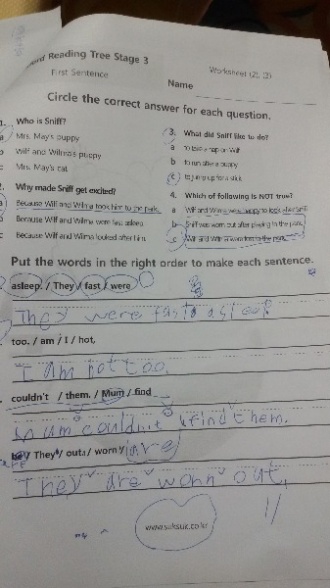 Reading Tree Stage 3
First Sentence
Worksheet
Name
Circle the correct answer for each question.
Who is Sniff?
Mrs. May's puppy
Wilf and Wilma's puppy
Mrs. May's cat
Why made Sniff get excited?
Because Wilf and Wilma took him to the park.
Because Wilf and Wilma were fast asleep
Because Wilf and Wilma looked after him
3. What did Sniff like to do?
a
b to run after a puppy
c to jump up for a stick
4. Which of following is NOT true?
a Wilf and Wilma were happy to look after Sniff
b Sniff was worn out after playing in the park
c Wilf and Wilma went to the park
Put the words in the right order to make each sentence.
asleep. / They / fast / were
They were fast asleep
too. / am / I / hot,
I am hot too.
couldn't / them. / Mum / find
Mum couldn't find them.
be / They / out. / worn are
They are worn out.
www.suksuk.co.kr